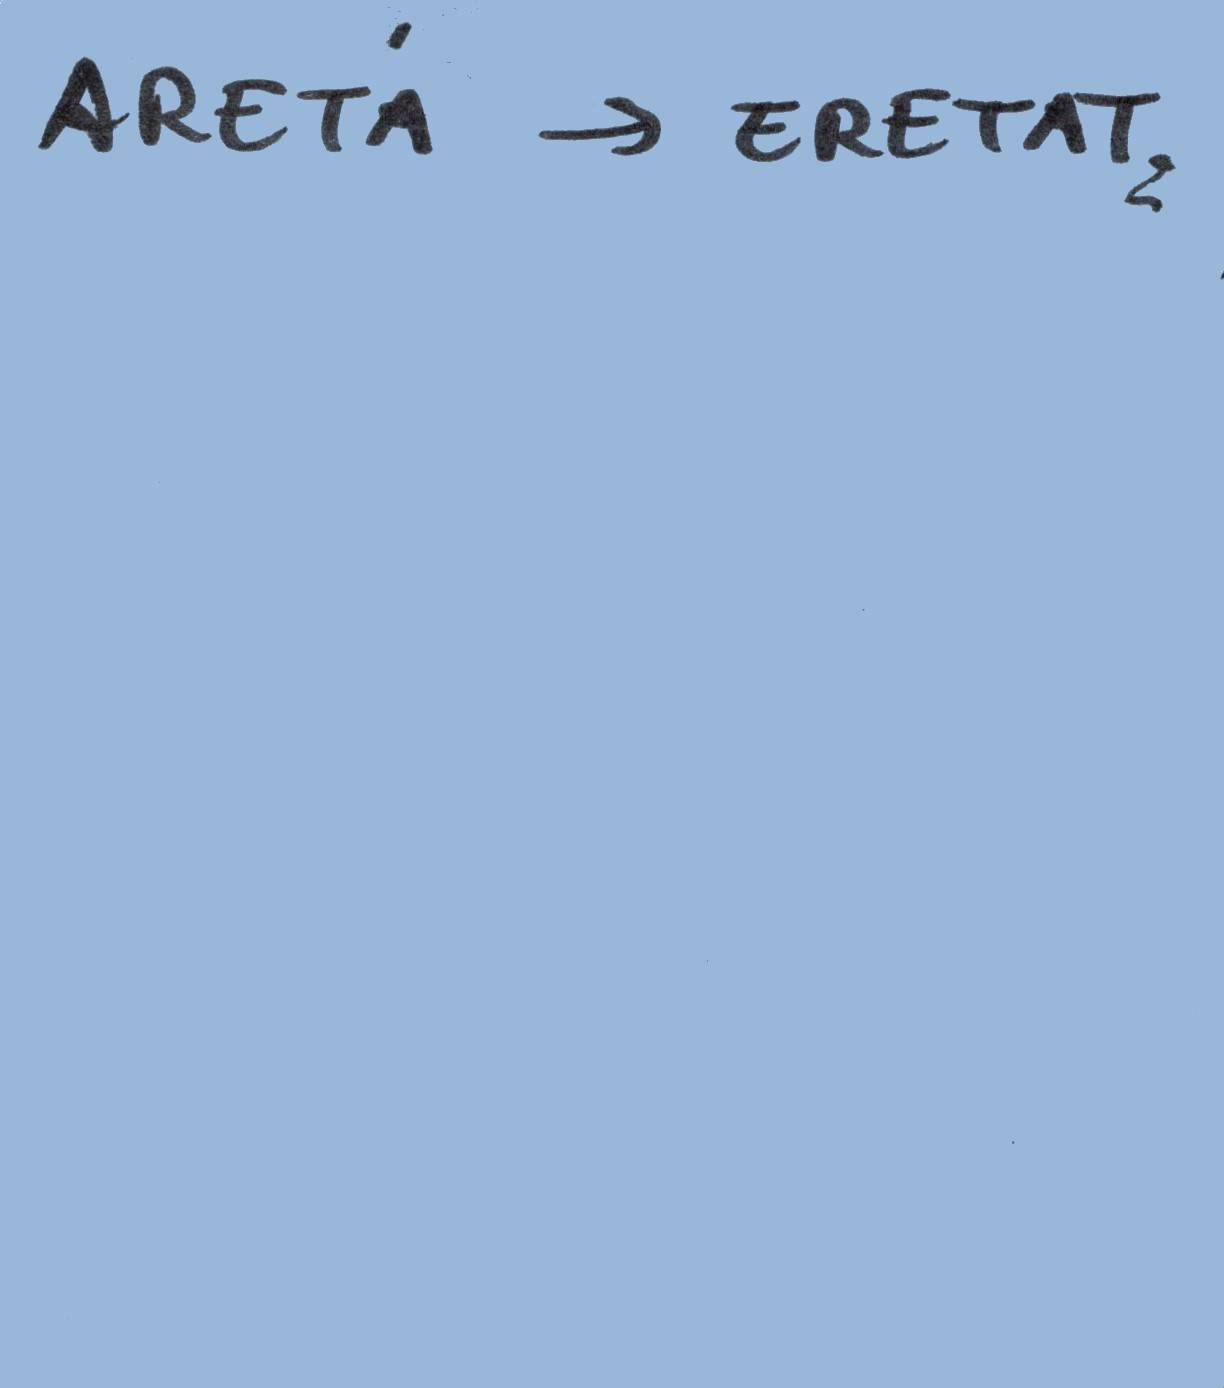 ARETÁ → ERETAT₂